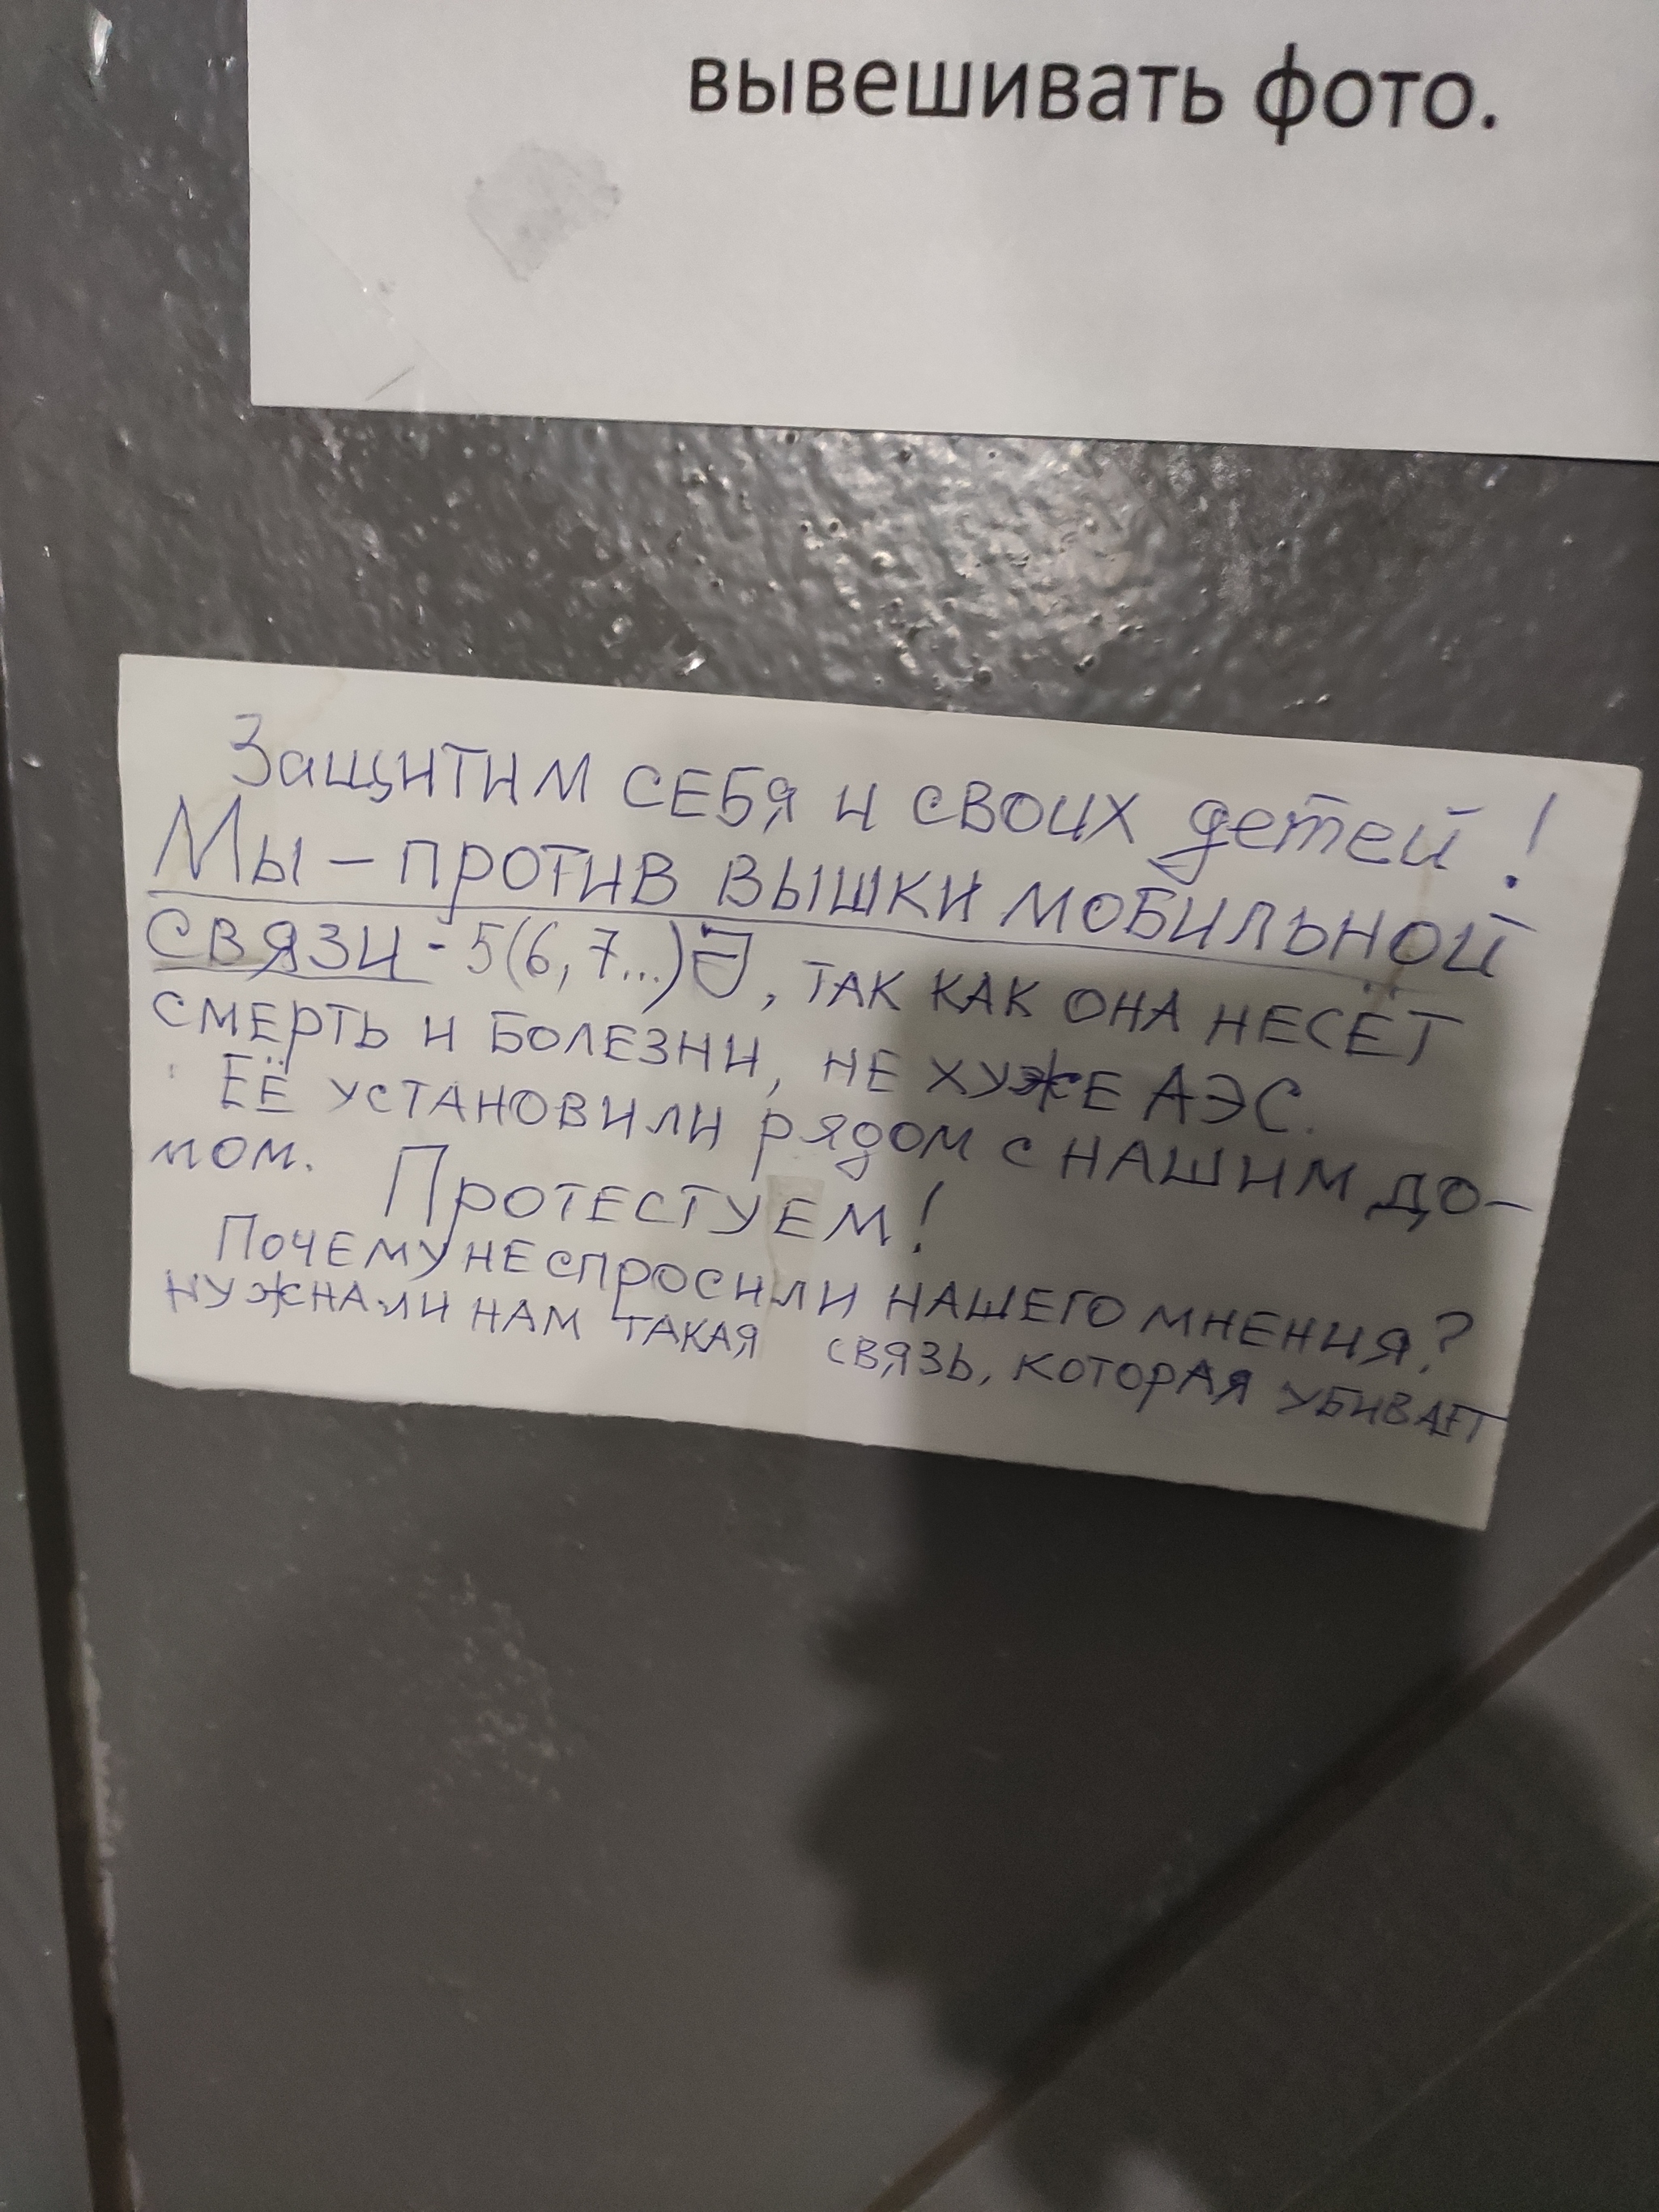 вывешивать фото.
Защитим СЕБЯ и СВОИХ детей!
Мы – ПРОТИВ ВЫШКИ МОБИЛЬНОЙ
СВЯЗИ - 5(6, 7...) , ТАК КАК ОНА НЕСЁТ
СМЕРТЬ И БОЛЕЗНИ, НЕ ХУЖЕ АЭС.
ЕЁ УСТАНОВИЛИ РЯДОМ С НАШИМ ДО-
МОМ. ПРОТЕСТУЕМ!
ПОЧЕМУ НЕ СПРОСИЛИ НАШЕГО МНЕНИЯ?
НУЖНА ЛИ НАМ ТАКАЯ СВЯЗЬ, КОТОРАЯ УБИВАЕТ